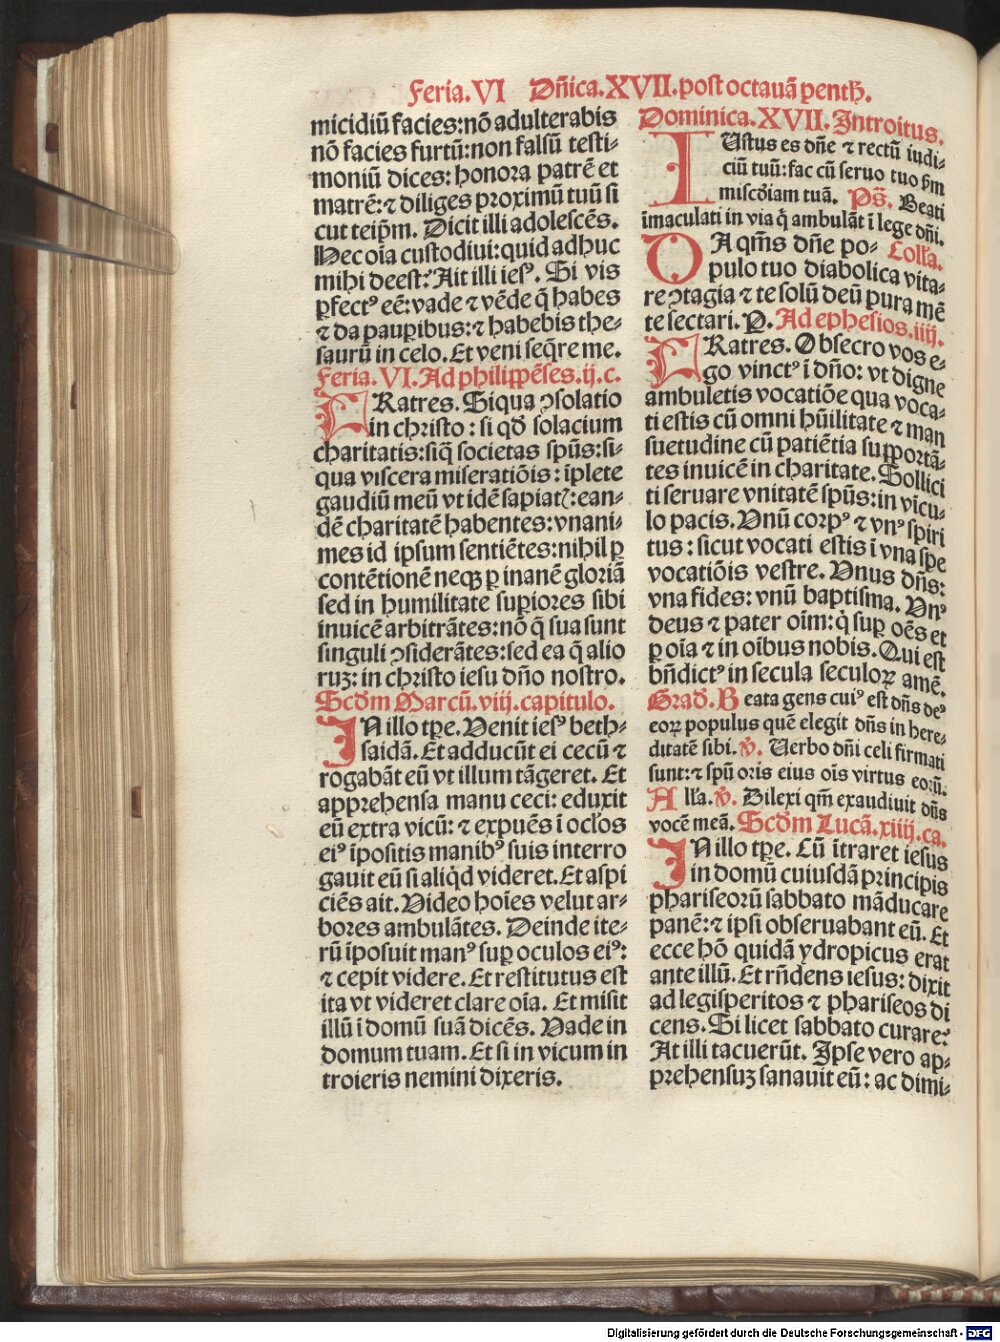 Feria. VI Dñica. XVII. post octauā penth̄.
micidiū facies: nō adulterabis
nō facies furtū: non falsū testi-
moniū dices: honora patrē et
matrē: ⁊ diliges proximū tuū si
cut teip̄m. Dicit illi adolescēs.
Nec oīa custodiui: quid adhuc
mihi deest? Ait illi iesꝰ. Si vis
ꝑfectꝰ eē: vade ⁊ vēde q̄ habes
⁊ da pauꝑibus: ⁊ habebis the-
saurū in celo. Et veni seq̄re me.
Feria. VI. Ad philippēses. ij. c.
FRatres. Siqua ꝯsolatio
in christo: si qd̄ solacium
charitatis: siq̄ societas sp̄us: si-
qua viscera miseratiōis: īplete
gaudiū meū vt idē sapiatꝭ: ean-
dē charitatē habentes: vnani-
mes id ipsum sentiētes: nihil ꝑ
contētionē neqꝫ ꝑ inanē gloriā
sed in humilitate suꝑiores sibi
inuicē arbitrātes: nō q̄ sua sunt
singuli ꝯsiderātes: sed ea q̄ alio
ruꝫ: in christo iesu dn̄o nostro.
Scd̄m Marcū. viij. capitulo.
IN illo tp̄e. Venit iesꝰ beth-
saidā. Et adducūt ei cecū ⁊
rogabāt eū vt illum tāgeret. Et
apprehensa manu ceci: eduxit
eū extra vicū: ⁊ expuēs ī ocl̄os
eiꝰ īpositis manibꝰ suis interro
gauit eū si aliq̇d videret. Et aspi
ciēs ait. Video hoīes velut ar-
bores ambulātes. Deinde ite-
rū īposuit manꝰ suꝑ oculos eiꝰ:
⁊ cepit videre. Et restitutus est
ita vt videret clare oīa. Et misit
illū ī domū suā dicēs. Vade in
domum tuam. Et si in vicum in
troieris nemini dixeris.
Dominica. XVII. Introitus.
IUstus es dn̄e ⁊ rectū iudi-
ciū tuū: fac cū seruo tuo ẜm
misc̄diam tuā. Ps̄. Beati
imaculati in via q̇ ambulāt ī lege dn̄i.
DA qm̄s dn̄e po- Coll̄a.
pulo tuo diabolica vita-
re ꝯtagia ⁊ te solū deū pura mē
te sectari. P. Ad ephesios. iiij.
FRatres. Obsecro vos e-
go vinctꝰ ī dn̄o: vt digne
ambuletis vocatiōe qua voca-
ti estis cū omni hūilitate ⁊ man
suetudine cū patiētia supportā-
tes inuicē in charitate. Sollici
ti seruare vnitatē sp̄us: in vīcu-
lo pacis. Vnū corpꝰ ⁊ vnꝰ spiri
tus: sicut vocati estis ī vna spe
vocatiōis vestre. Vnus dn̄s:
vna fides: vnū baptisma. Vnꝰ
deus ⁊ pater oīm: q̇ suꝑ oēs et
ꝑ oīa ⁊ in oībus nobis. Qui est
bn̄dictꝰ in secula seculoꝝ amē.
Grad̄. Beata gens cuiꝰ est dn̄s deꝰ
eoꝝ populus quē elegit dn̄s in here-
ditatē sibi. ℣. Uerbo dn̄i celi firmati
sunt: ⁊ sp̄u oris eius oīs virtus eorū.
All̄a. ℣. Dilexi qm̄ exaudiuit dn̄s
vocē meā. Scd̄m Lucā. xiiij. ca.
IN illo tp̄e. Cū ītraret iesus
in domū cuiusdā principis
phariseorū sabbato māducare
panē: ⁊ ipsi obseruabant eū. Et
ecce hō quidā ydropicus erat
ante illū. Et rn̄dens iesus: dixit
ad legisperitos ⁊ phariseos di
cens. Si licet sabbato curare?
At illi tacuerūt. Ipse vero ap-
prehensuꝫ sanauit eū: ac dimi-
Digitalisierung gefördert durch die Deutsche Forschungsgemeinschaft - DFG